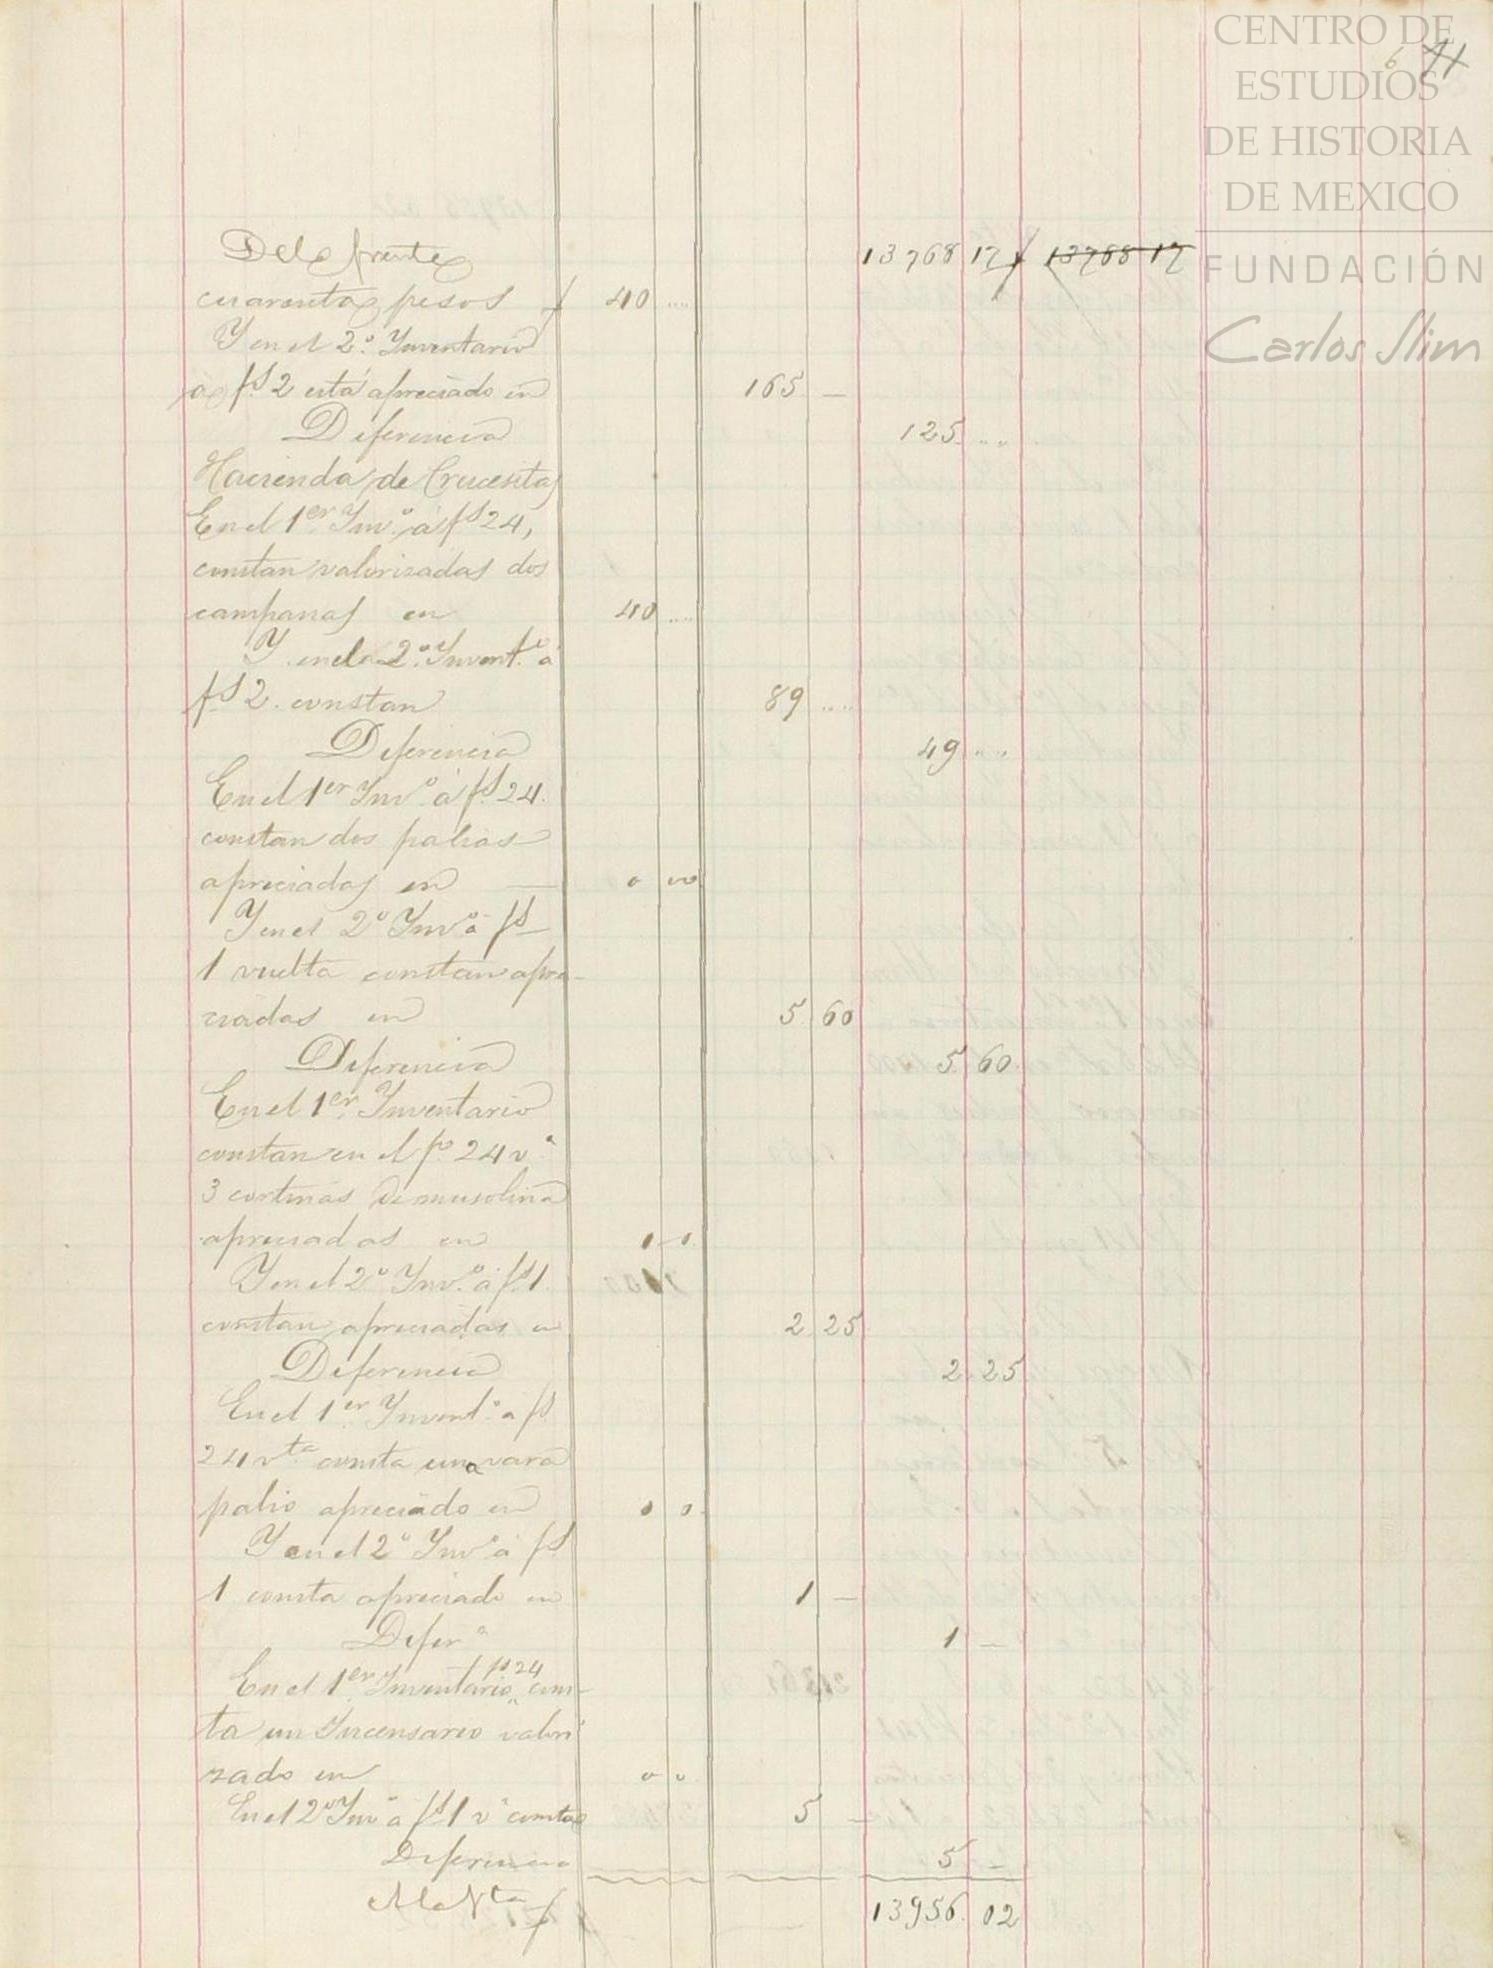 CENTRO DE
ESTUDIOS
DE HISTORIA
DE MEXICO
FUNDACIÓN
Carlos Slim
6 71
Del frente 13768 17 13788 17
cuarenta pesos 40 ....
Y en el 2º. Inventario
á fs 2 está apreciado en 165 —
Diferencia 125 ....
Hacienda de Crucesitas
En el 1er Invº. á fs 24,
constan valorizadas dos
campanas en 40 ....
Y en el 2º. Invent.º á
fs 2. constan 89 ....
Diferencia 49 ....
En el 1er Invº á fs 24.
constan dos palias
apreciadas en — 0 00
Y en el 2º Invº á fs
1 vuelta constan apre-
ciadas en 5 60
Diferencia 5 60
En el 1er Inventario
constan en el fº 24 vª
3 cortinas de musolina
apreciadas en 0 0
Y en el 2º Invº. á fs 1.
constan apreciadas en 2 25
Diferencia 2 25
En el 1er Invent.º a fs
24 vta consta una vara
palio apreciado en 0 0
Y en el 2º Invº á fs
1 consta apreciado en 1 —
Diferª 1 —
En el 1er Inventario fs 24 cons-
ta un Incensario valori
zado en 0 0
En el 2º Invº á fs 1 vª consta 5 —
Diferencia 5 —
A la Vta 13956. 02